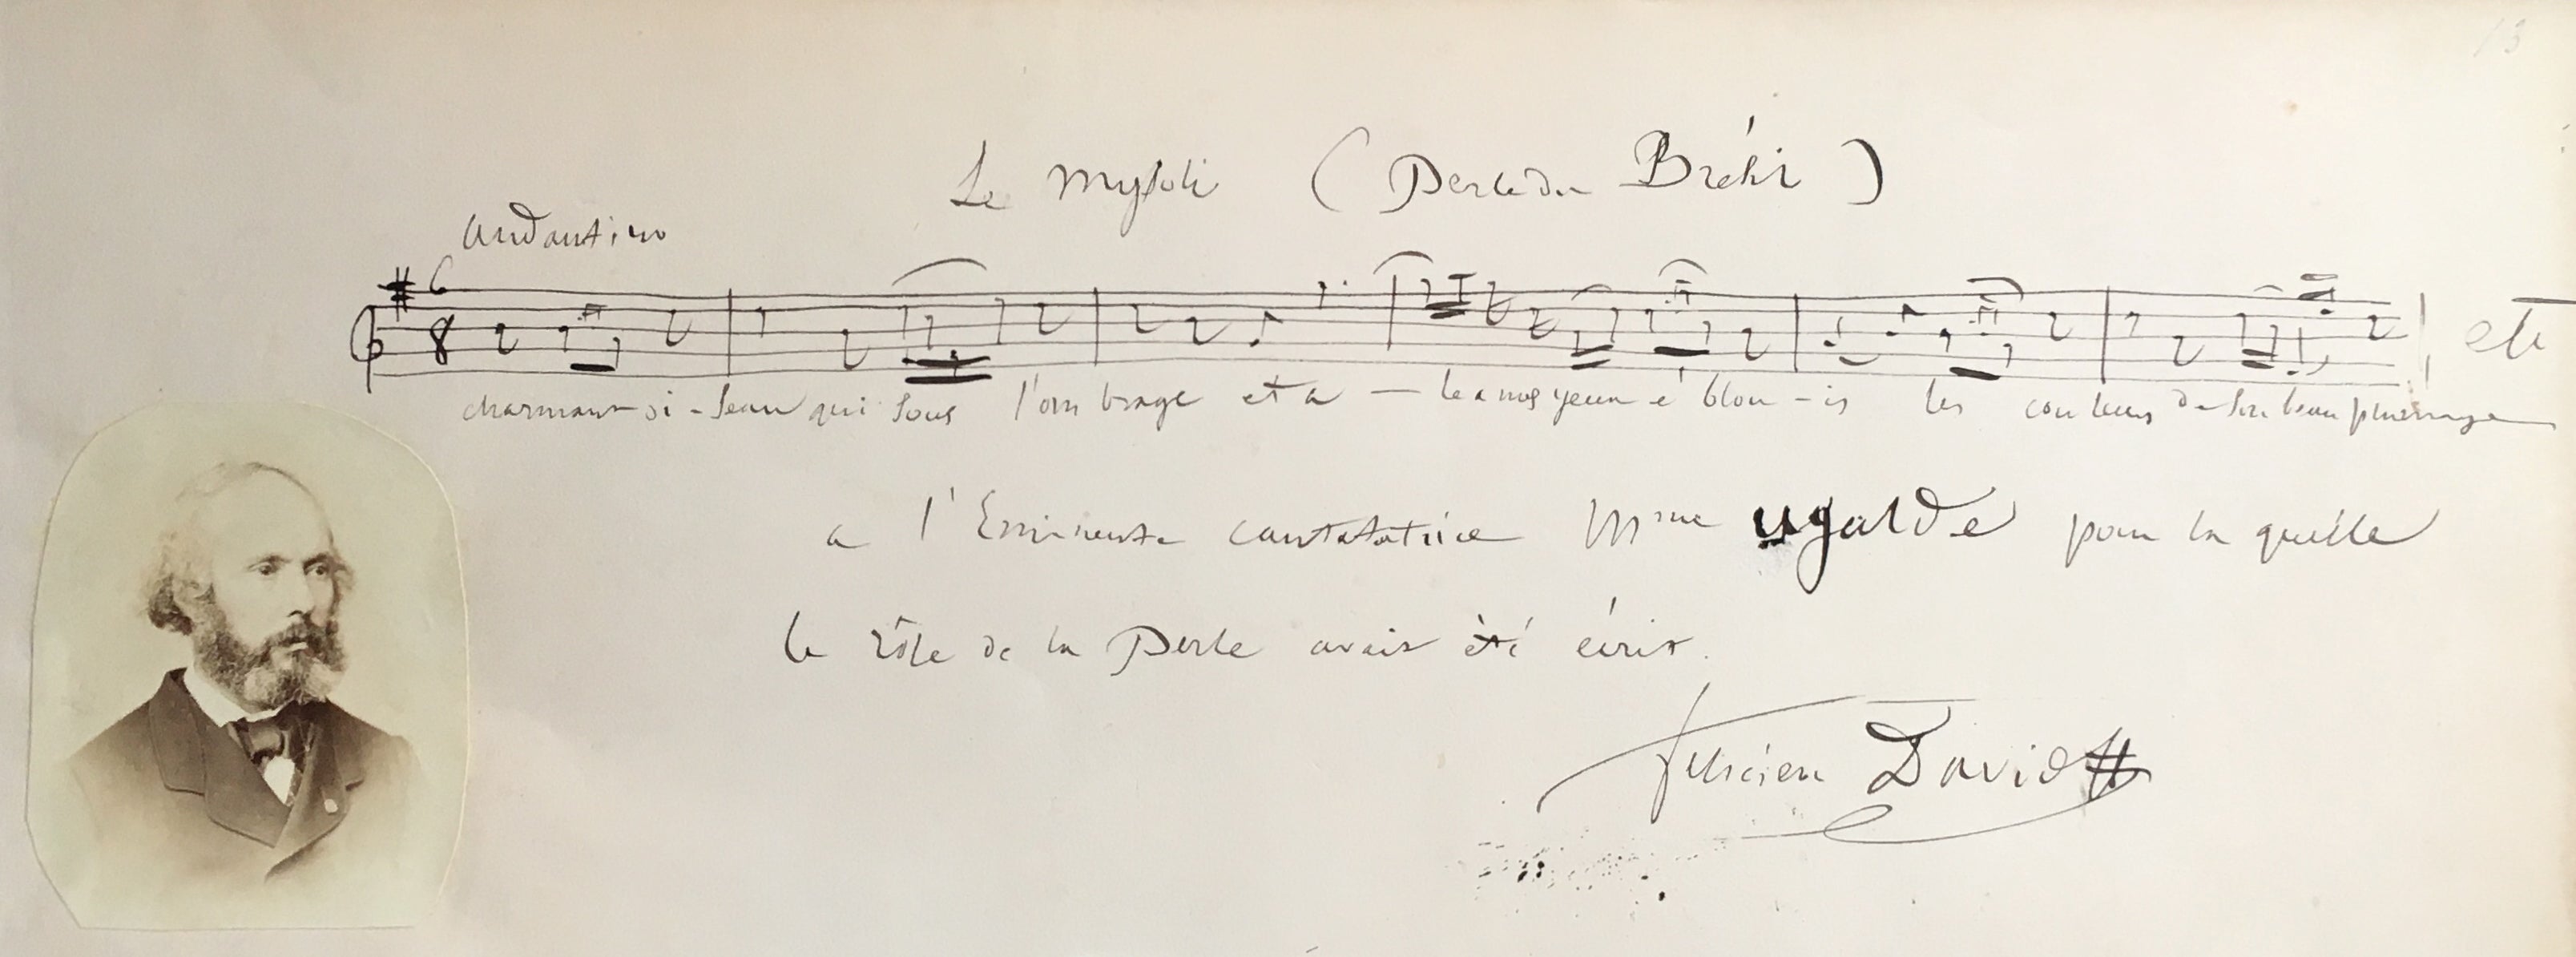 13
Le Mysoli (Perle du Brésil)
andantino
6
8
charmant oi - seau qui sous l'ombrage eta — le a nos yeux é blou - is les couleurs de son beau plumage etc
a l'Eminente cantatatrice Mme ugalde pour la quelle
le rôle de la Perle avait été écrit.
Félicien David